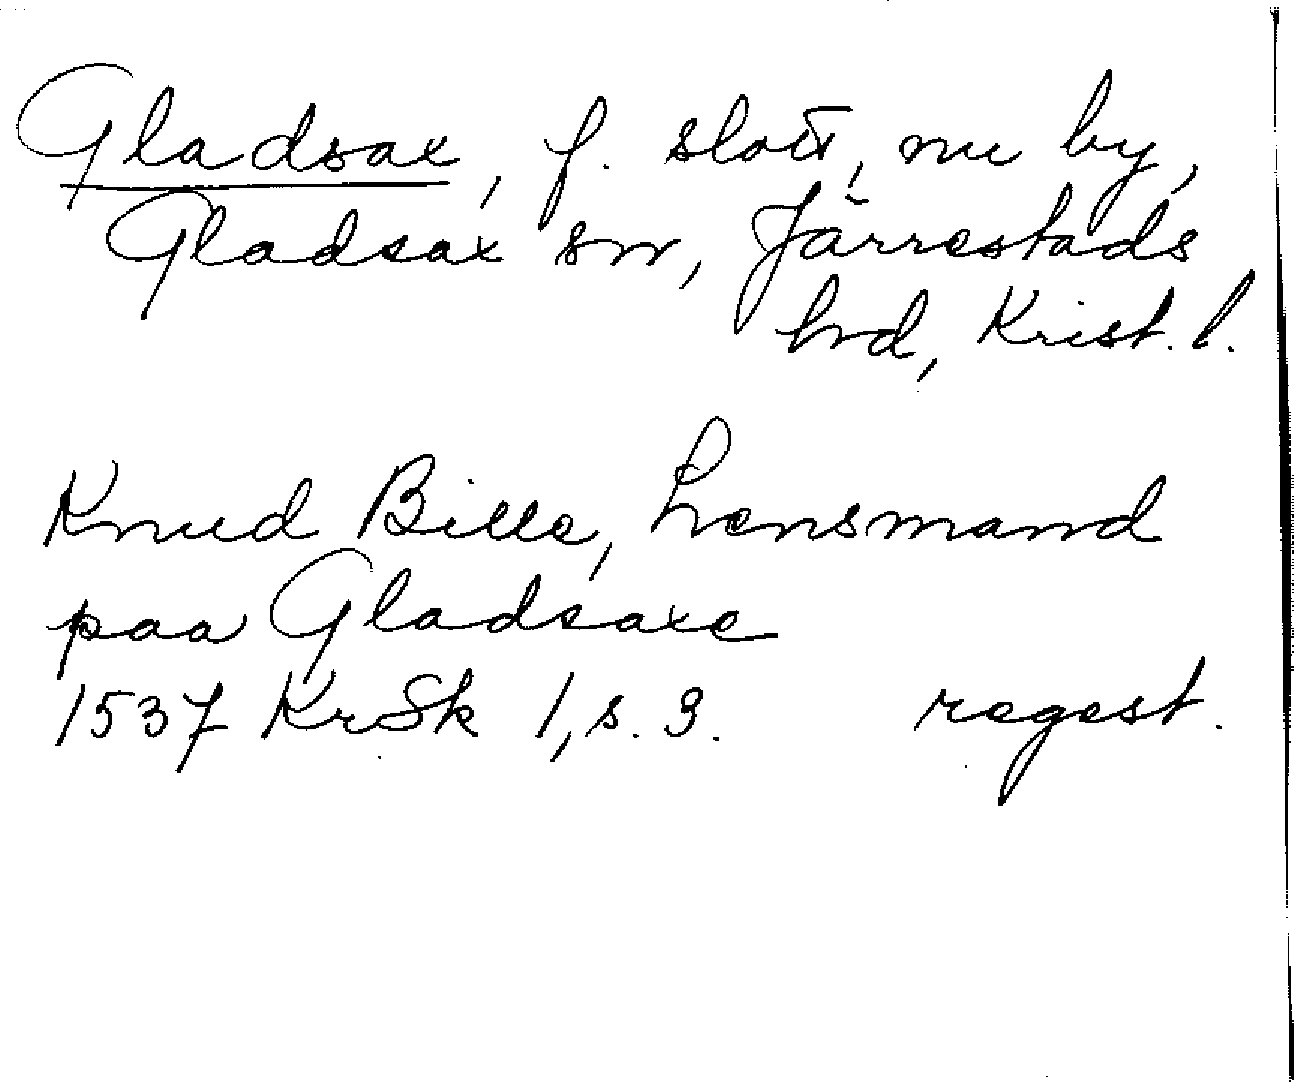 Gladsax, f. slott, nu by,
Gladsax sn, Järrestads
hd, Krist. l.
Knud Bille, Lensmand
paa Gladsaxe
1537 KrSk 1, s. 9. regest.